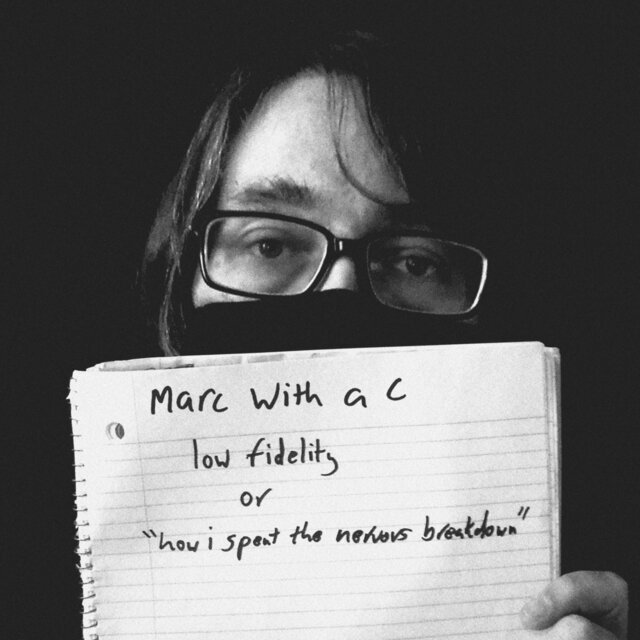 Marc With a C
low fidelity
or
"how i spent the nervous breakdown"